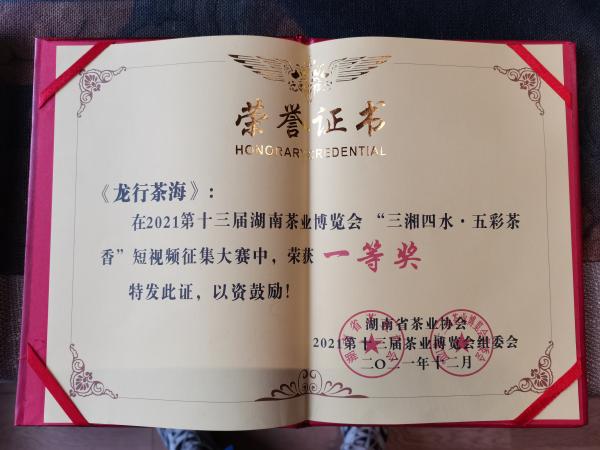 荣誉证书
HONORARY CREDENTIAL
《龙行茶海》：
在2021第十三届湖南茶业博览会“三湘四水·五彩茶
香”短视频征集大赛中，荣获 一等奖
特发此证，以资鼓励！
湖南省茶业协会
2021第十三届茶业博览会组委会
二〇二一年十二月